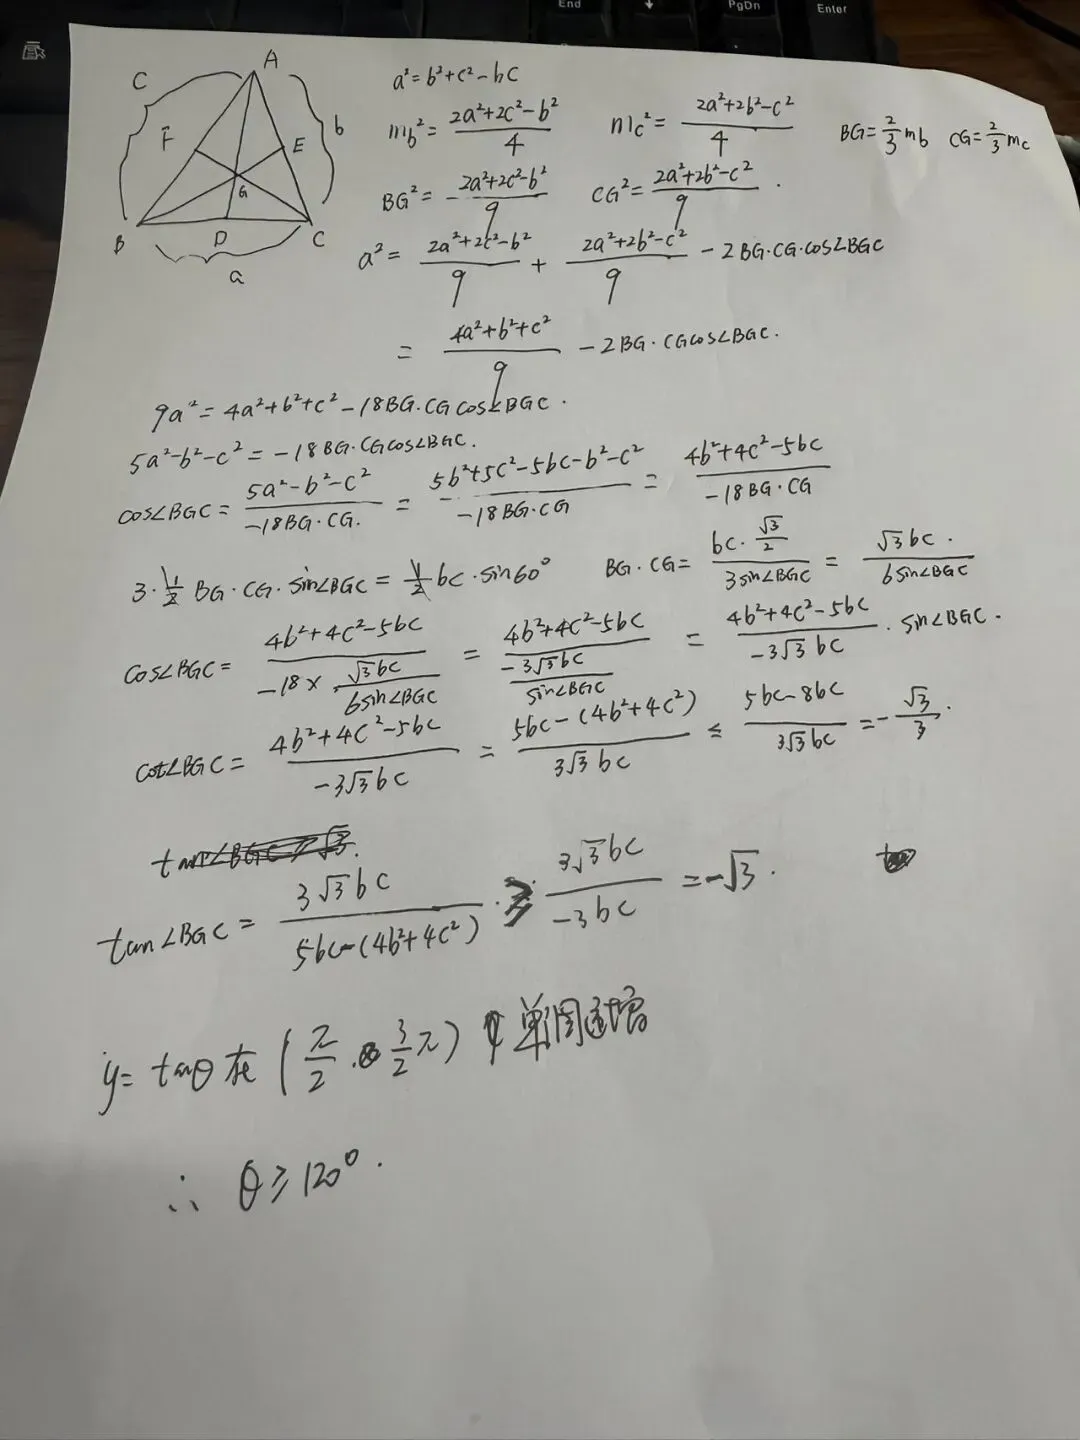 End
↓
PgDn
Enter
C
A
b
F
E
G
B
D
C
a
a²=b²+c²-bc
m_b²=\frac{2a²+2c²-b²}{4} m_c²=\frac{2a²+2b²-c²}{4} BG=\frac{2}{3}m_b CG=\frac{2}{3}m_c
BG²=\frac{2a²+2c²-b²}{9} CG²=\frac{2a²+2b²-c²}{9}.
a²=\frac{2a²+2c²-b²}{9}+\frac{2a²+2b²-c²}{9}-2BG·CG·cos∠BGC
=\frac{4a²+b²+c²}{9}-2BG·CGcos∠BGC.
9a²=4a²+b²+c²-18BG·CGcos∠BGC.
5a²-b²-c²=-18BG·CGcos∠BGC.
cos∠BGC=\frac{5a²-b²-c²}{-18BG·CG.}=\frac{5b²+5c²-5bc-b²-c²}{-18BG·CG}=\frac{4b²+4c²-5bc}{-18BG·CG}
3·\frac{1}{2}BG·CG·sin∠BGC=\frac{1}{2}bc·sin60° BG·CG=\frac{bc·\frac{√3}{2}}{3sin∠BGC}=\frac{√3bc.}{6sin∠BGC}
cos∠BGC=\frac{4b²+4c²-5bc}{-18×\frac{√3bc}{6sin∠BGC}}=\frac{4b²+4c²-5bc}{\frac{-3√3bc}{sin∠BGC}}=\frac{4b²+4c²-5bc}{-3√3bc}·sin∠BGC.
cot∠BGC=\frac{4b²+4c²-5bc}{-3√3bc}=\frac{5bc-(4b²+4c²)}{3√3bc}≤\frac{5bc-8bc}{3√3bc}=-\frac{√3}{3}.
tan∠BGC≥√3.
tan∠BGC=\frac{3√3bc}{5bc-(4b²+4c²)}≥\frac{3√3bc}{-3bc}=-√3.
y=tanθ在(\frac{π}{2}.\frac{3}{2}π)单调递增
∴ θ≥120°.